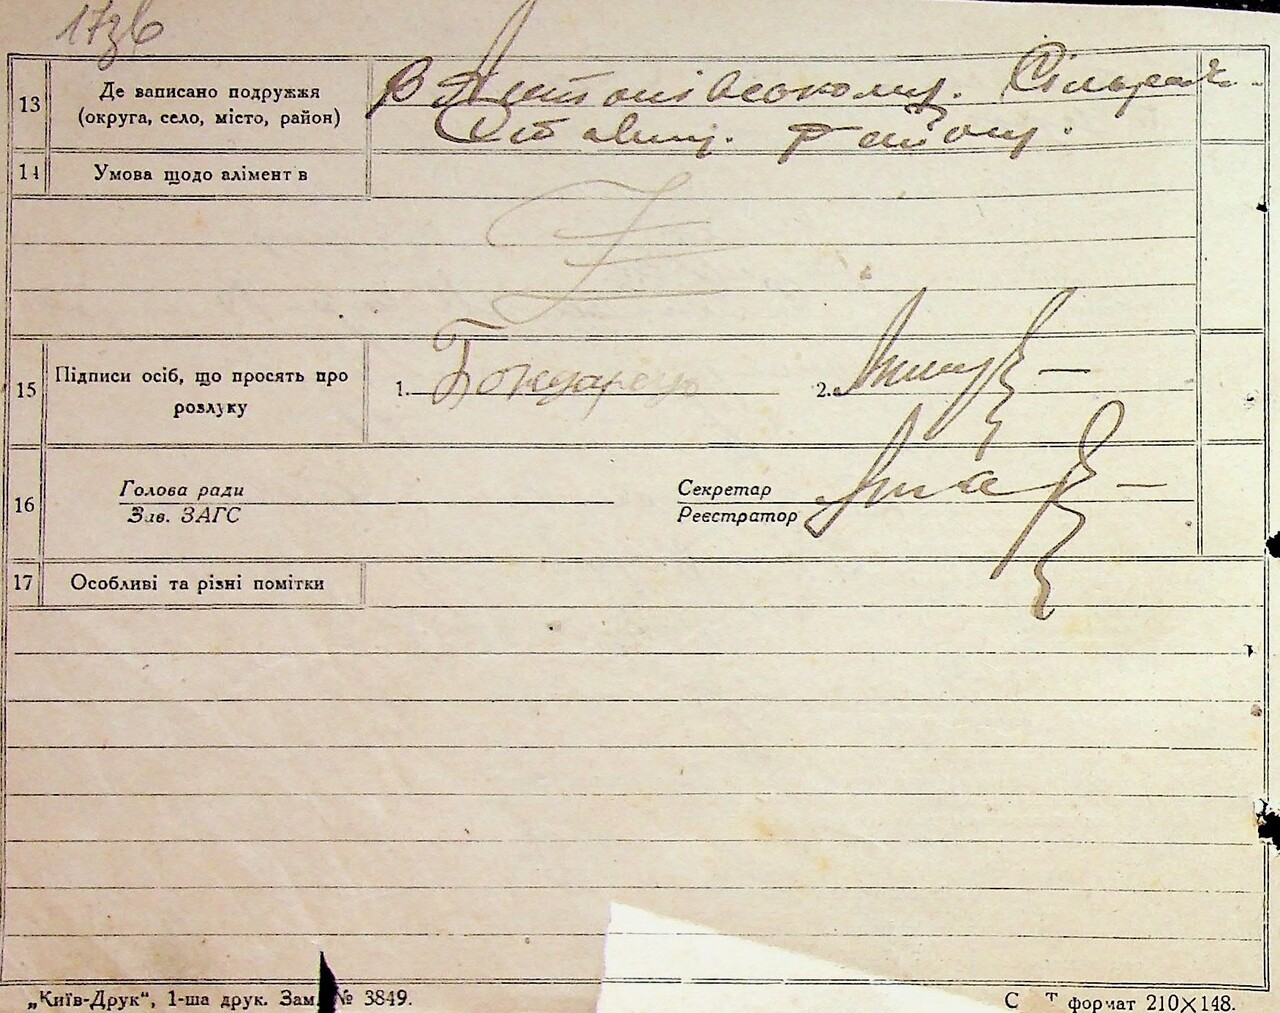 17зв
13 Де записано подружжя В Антонівському. Сільраді
(округа, село, місто, район) Ставищ. району.
14 Умова щодо алімент в
15 Підписи осіб, що просять про
розлуку 1. Бондарець 2.
16 Голова ради Секретар
Зав. ЗАГС Реєстратор
17 Особливі та різні помітки
„Київ-Друк“, 1-ша друк. Зам. № 3849. С Т формат 210×148.